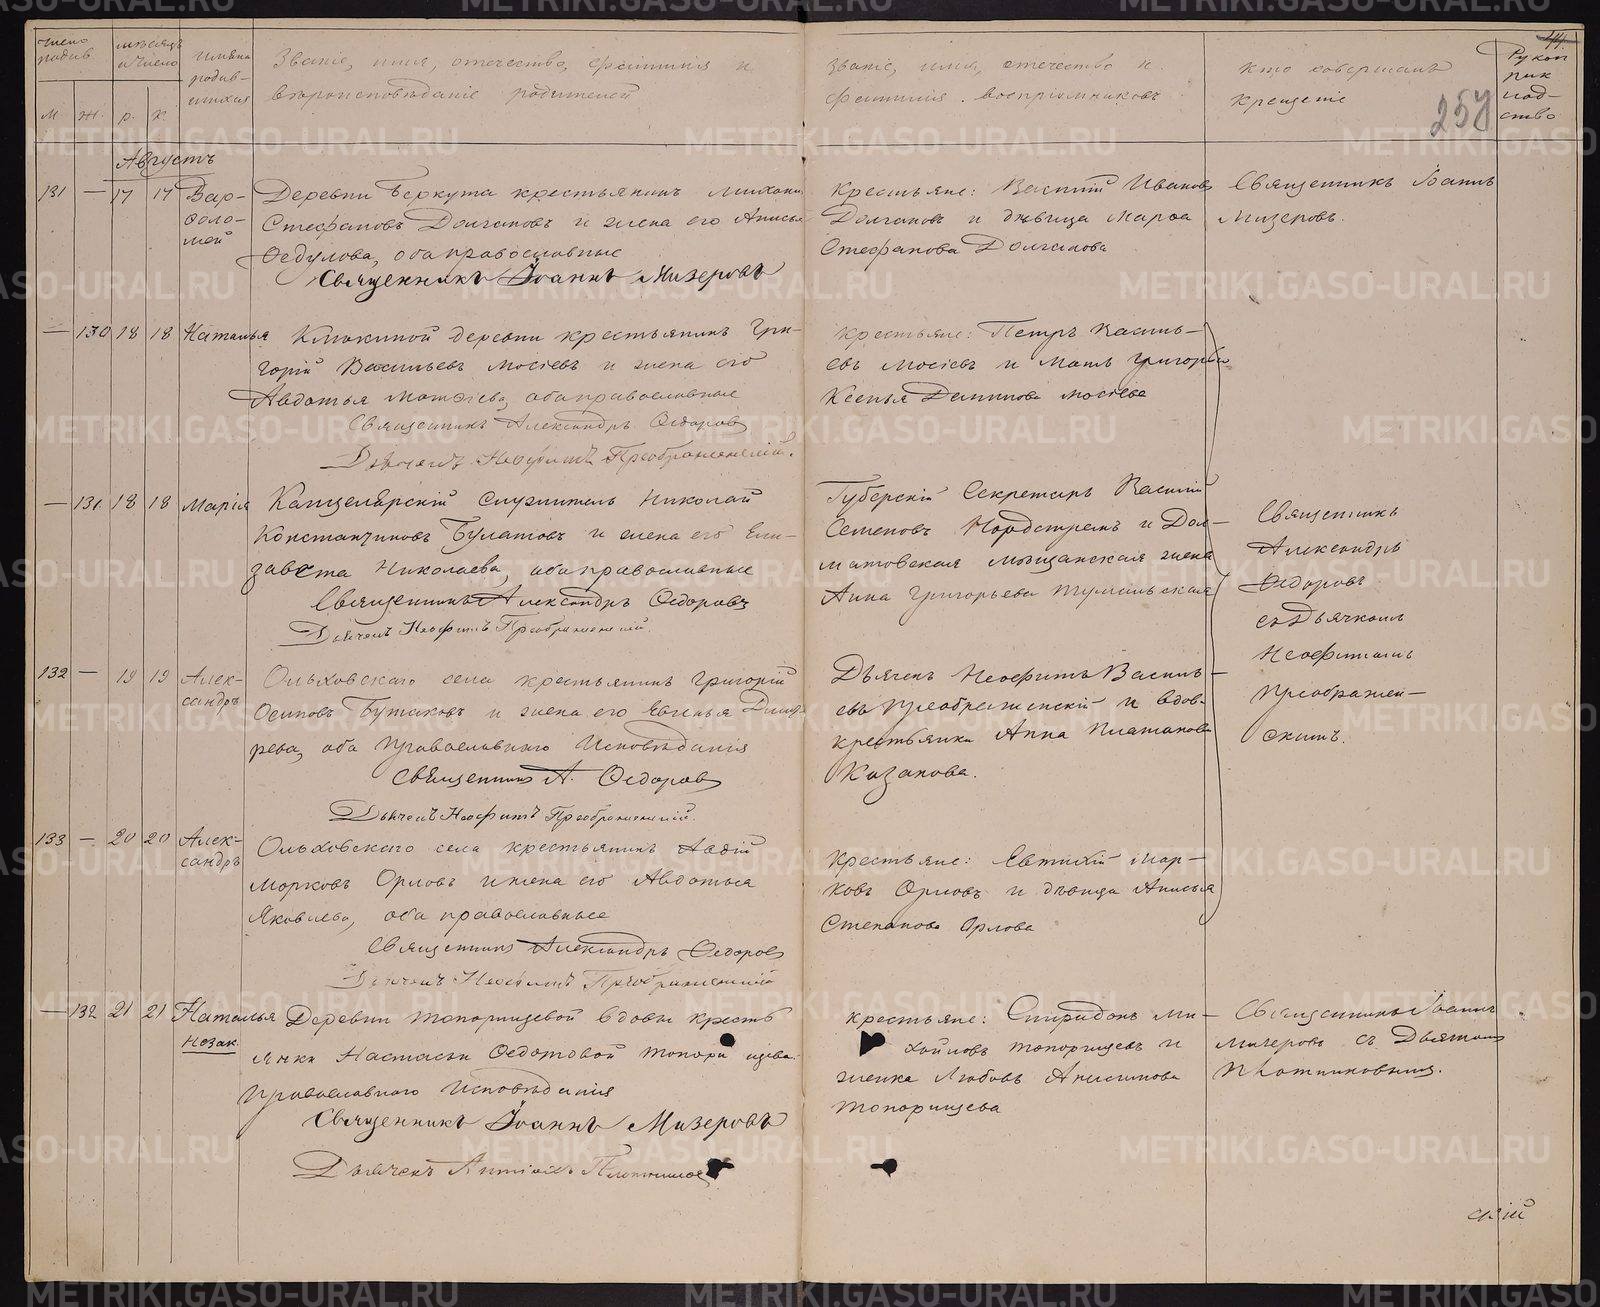 число родив.
мѣсяцъ и число
имяна родив-
шихся
Званіе, имя, отчество, фамилія и
вѣроисповѣданіе родителей
Званіе, имя, отчество и
фамилія воспріемниковъ
Кто совершалъ
крещеніе
Рукоп
рик
лод-
ство
257
м ж. р. к.
Августъ
131 — 17 17 Вар-
ѳоло-
мей
Деревни Беркута крестьянинъ Михаилъ
Стефановъ Долгановъ и жена его Анисья
Ѳедулова, оба православные
Священникъ Іоаннъ Мизеровъ
Крестьяне: Василій Ивановъ
Долгановъ и дѣвица Марѳа
Стефанова Долганова
Священникъ Іоаннъ
Мизеровъ.
— 130 18 18 Наталья
деревни крестьянинъ Гри-
горій Васильевъ Мосіевъ и жена его
Авдотья Матѳіева, оба православные
Священникъ Александръ Ѳедоровъ
Дьячекъ Неофитъ Преображенскій.
Крестьяне: Петръ Василь-
евъ Мосіевъ и Мать Григорія
Ксенья Данилова Мосіева
— 131 18 18 Марія
Канцелярскій служитель Николай
Константиновъ Булатовъ и жена его Ели-
завета Николаева, оба православные
Священникъ Александръ Ѳедоровъ
Дьячекъ Неофитъ Преображенскій.
Губерскій Секретарь Василій
Семеновъ Нордстремъ и Дол-
матовская мѣщанская жена
Анна Григорьева
Священникъ
Александръ
Ѳедоровъ
съ Дьячкомъ
Неофитомъ
Преображен-
скимъ.
132 — 19 19 Алек-
сандръ
Ольховскаго села крестьянинъ Григорій
Осиповъ Бутаковъ и жена его Евгенья Димит-
рева, оба Православнаго Исповѣданія
Священникъ А. Ѳедоровъ
Дьячекъ Неофитъ Преображенскій.
Дьячекъ Неофитъ Василь-
евъ Преображенскій и вдова
крестьянка Анна Платонова
Казакова.
133 — 20 20 Алек-
сандръ
Ольховскаго села крестьянинъ Авдій
Марковъ Орловъ и жена его Авдотья
Яковлева, оба православные
Священникъ Александръ Ѳедоровъ
Дьячекъ Неофитъ Преображенскій
Крестьяне: Евтихій Мар-
ковъ Орловъ и дѣвица Анисья
Степанова Орлова
— 132 21 21 Наталья
незак.
Деревни Топорищевой вдовы крестья
янки Настасьи Ѳедотовой Топорищева.
Православнаго Исповѣданія
Священникъ Іоаннъ Мизеровъ
Дьячекъ
крестьяне: Спиридонъ Ми-
хайловъ Топорищевъ и
женка Любовь Анисимова
Топорищева
Священникъ Іоаннъ
Мизеровъ съ Дьячкомъ
Плотниковымъ.
скій
METRIKI.GASO-URAL.RU